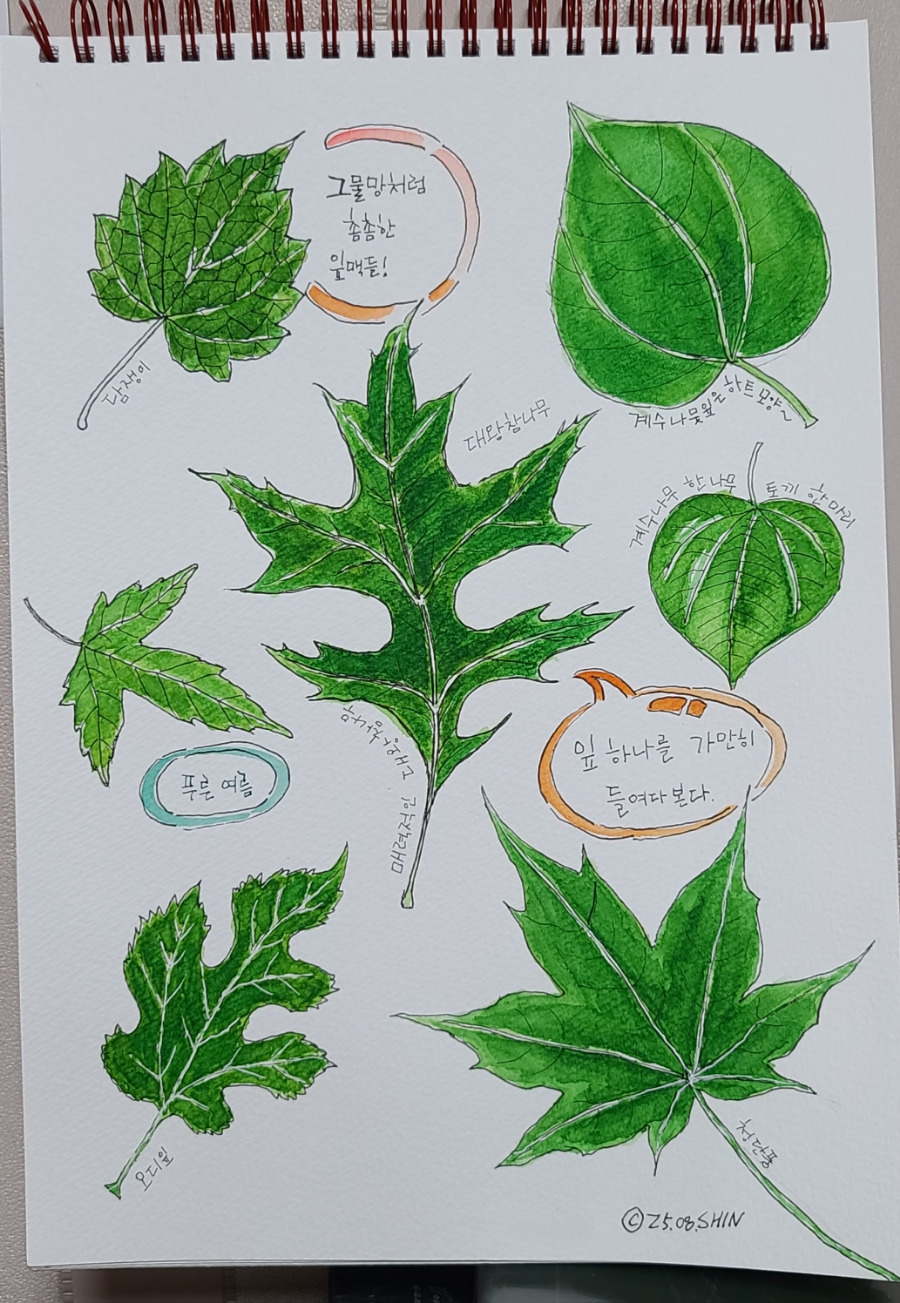 그물망처럼
촘촘한
잎맥들!
담쟁이
계수나뭇잎은 하트모양~
대왕참나무
계수나무 한나무 토끼 한마리
푸른 여름
잎 하나를 가만히
들여다본다.
매력적인
오디잎
청단풍
©25.08.SHIN